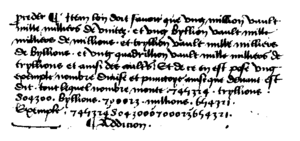 preder ¶ Item lon doit savoir que ung million vault
mille milliers de unitez. et ung byllion vault mille
milliers de millions. et tryllion vault mille milliers
de byllions. et ung quadrillion vault mille milliers de
tryllions et ainsi des aultres. Et de ce en est pose ung
exemple nombre divise et punctoye ainsi que devant est
dit. tout lequel nombre monte 745324. tryllions
804300. byllions. 700023. millions. 654321.
Exemple. 745324 8043000 700023 654321.
¶ Addicion.